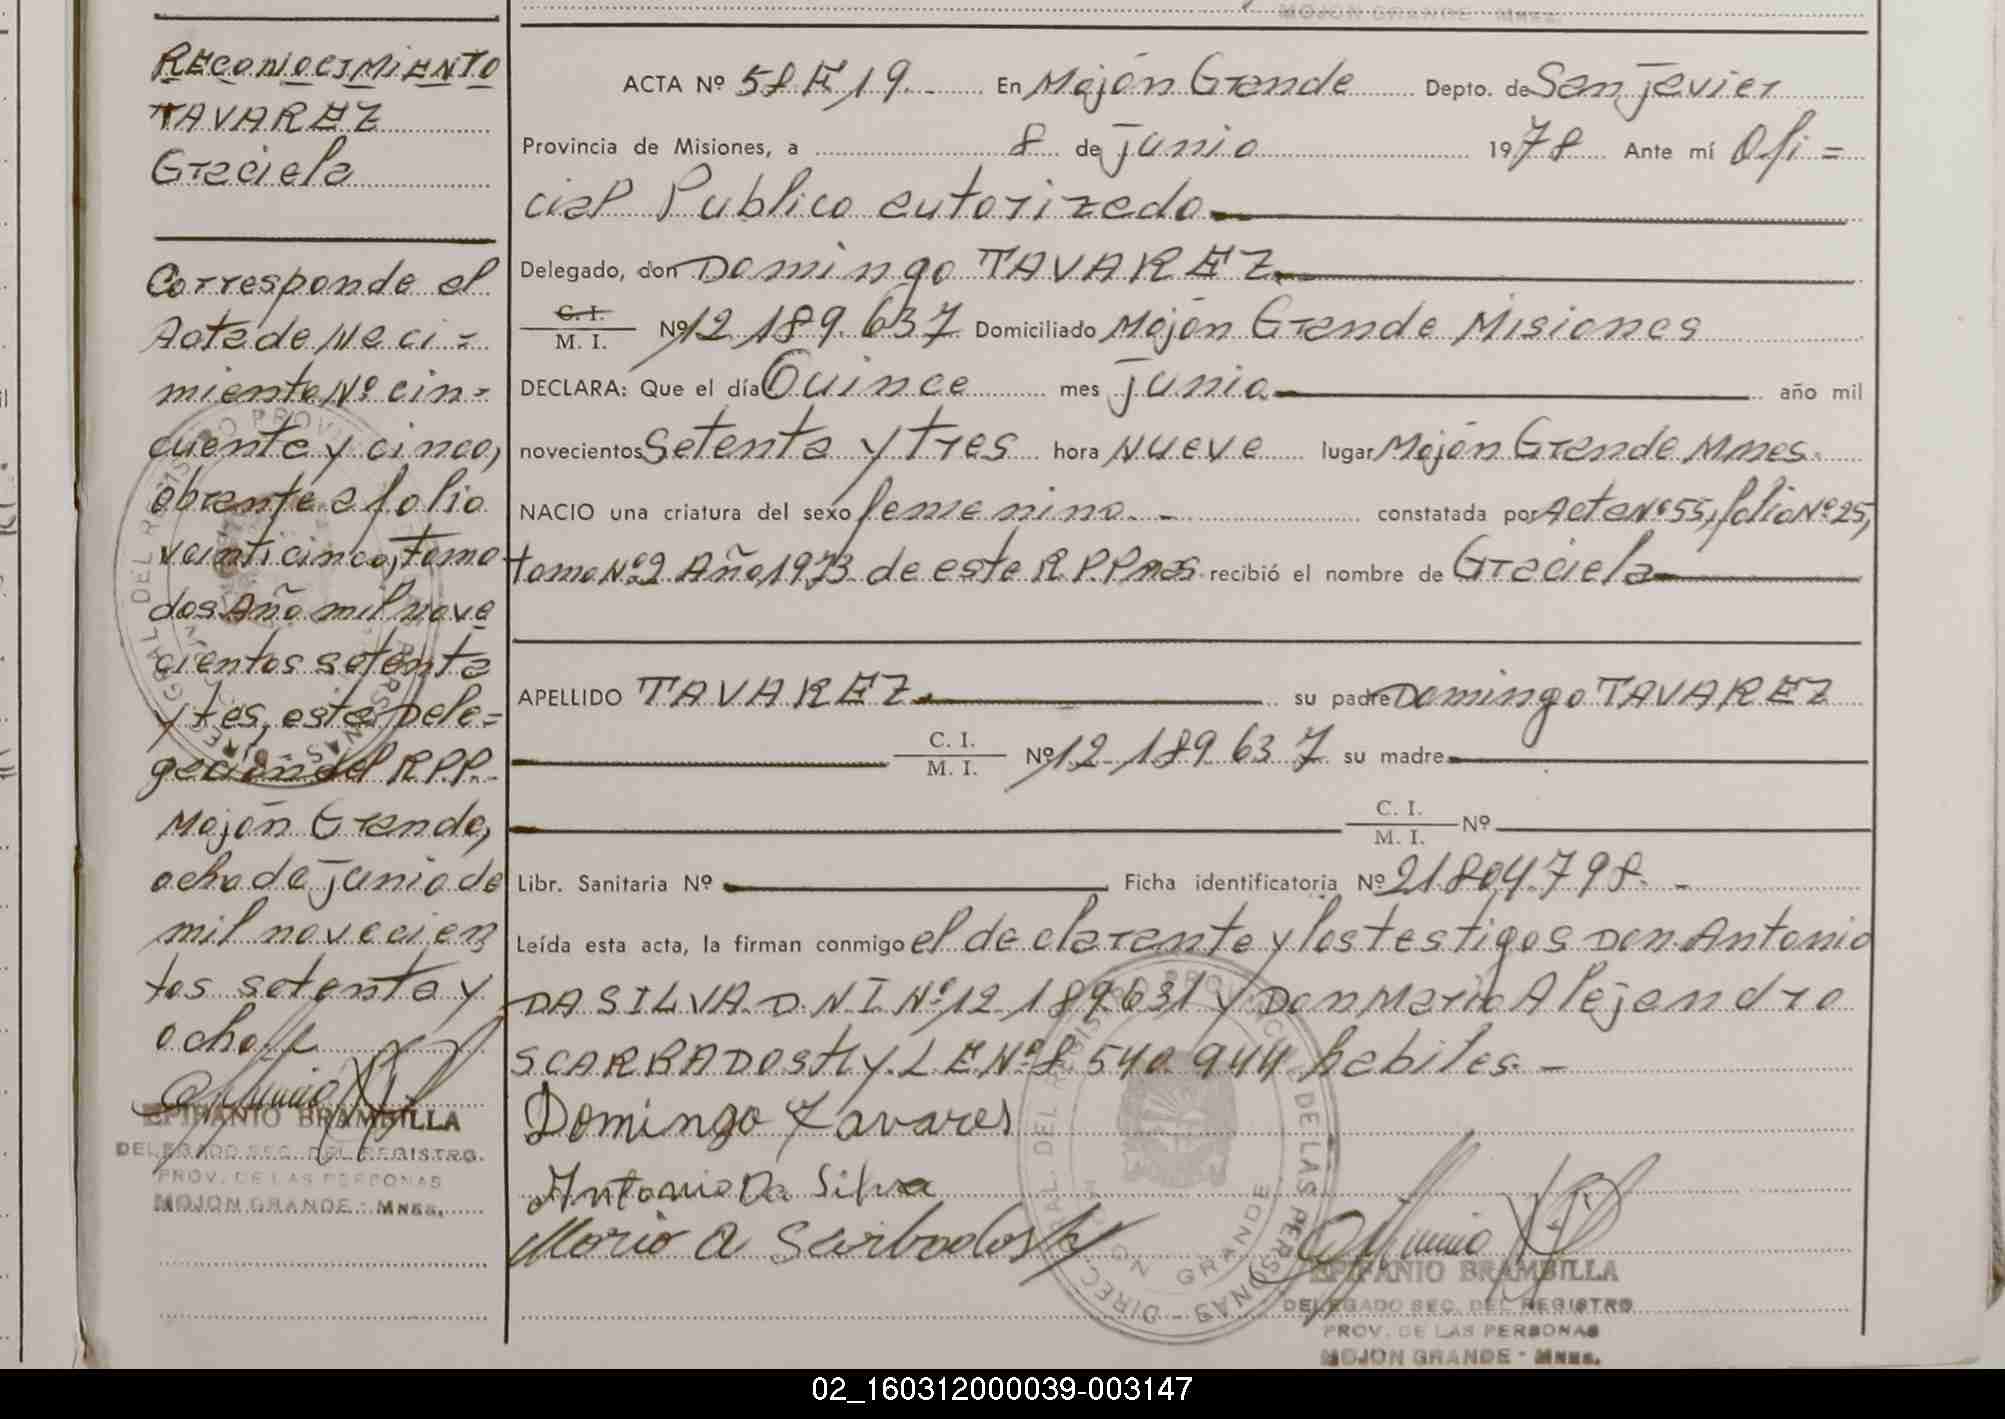 MOJON GRANDE - Mnes.
RECONOCIMIENTO
TAVAREZ
Graciela
Corresponde al
Acta de Naci=
miento Nº cin=
cuenta y cinco,
obrante a folio
veinticinco, tomo
dos Año mil nove
cientos setenta
y tes, esta Dele=
gación del R.P.P.
Mojón Grande,
ocho de junio de
mil novecien
tos setenta y
ocho
EPIFANIO BRAMBILLA
DELEGADO SEC. DEL REGISTRO.
PROV. DE LAS PERSONAS
MOJON GRANDE - Mnes.
ACTA Nº 58 F, 19. - En Mojón Grande Depto. de San Javier
Provincia de Misiones, a 8 de junio 1978 Ante mí Ofi=
cial Publico autorizado
Delegado, don Domingo TAVAREZ
C. I. / M. I. Nº 12.189.637 Domiciliado Mojón Grande Misiones
DECLARA: Que el día Quince mes junio año mil
novecientos Setenta y tres hora Nueve lugar Mojón Grande Mnes.
NACIO una criatura del sexo femenino.- constatada por Acta Nº 55, folio Nº 25,
tomo Nº 2 Año 1973 de este R.P.P Mnes. recibió el nombre de Graciela
APELLIDO TAVAREZ su padre Domingo TAVAREZ
C. I. / M. I. Nº 12.189.637 su madre
C. I. / M. I. Nº
Libr. Sanitaria Nº Ficha identificatoria Nº 21.804.798.-
Leída esta acta, la firman conmigo el declarante y los testigos Don Antonio
DA SILVA D.N.I. Nº 12.189.631 y Don Mario Alejandro
SCARBADOSHY. L.E. Nº 8.540.944 habiles.-
Domingo Tavares
Antonio Da Silva
Mario A
EPIFANIO BRAMBILLA
DELEGADO SEC. DEL REGISTRO
PROV. DE LAS PERSONAS
MOJON GRANDE - Mnes.
02_160312000039-003147